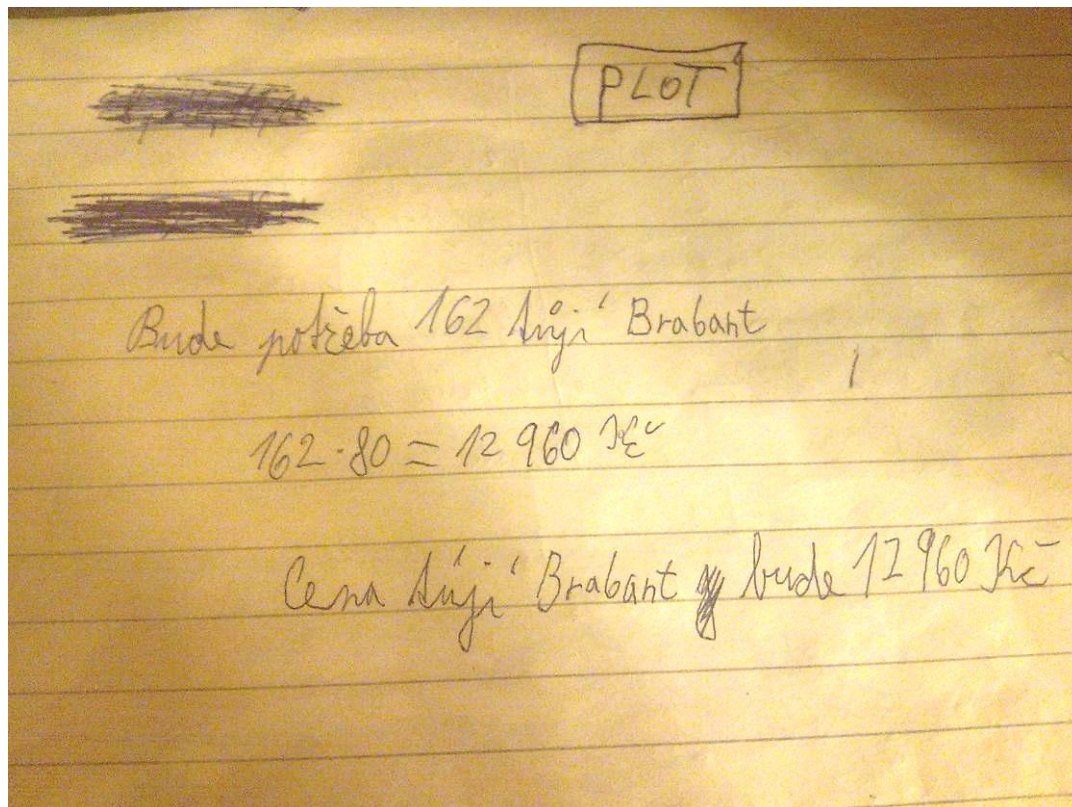 PLOT
Bude potřeba 162 tůjí Brabant
162 · 80 = 12 960 Kč
Cena tůjí Brabant bude 12 960 Kč